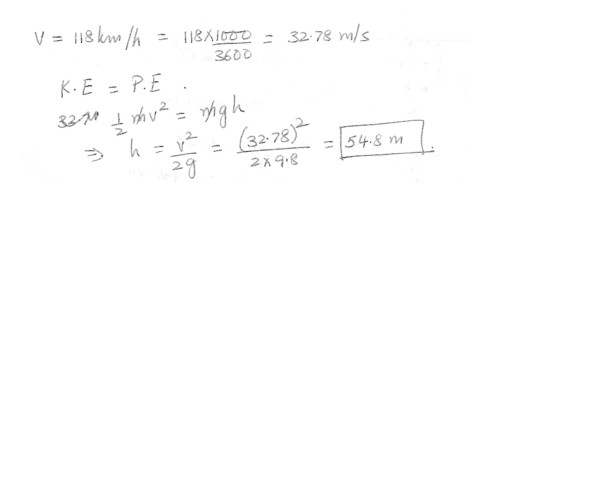 V = 118 km/h = 118×1000/3600 = 32.78 m/s
K.E = P.E .
1/2 mv² = mgh
⇒ h = v²/2g = (32.78)²/2×9.8 = 54.8 m .